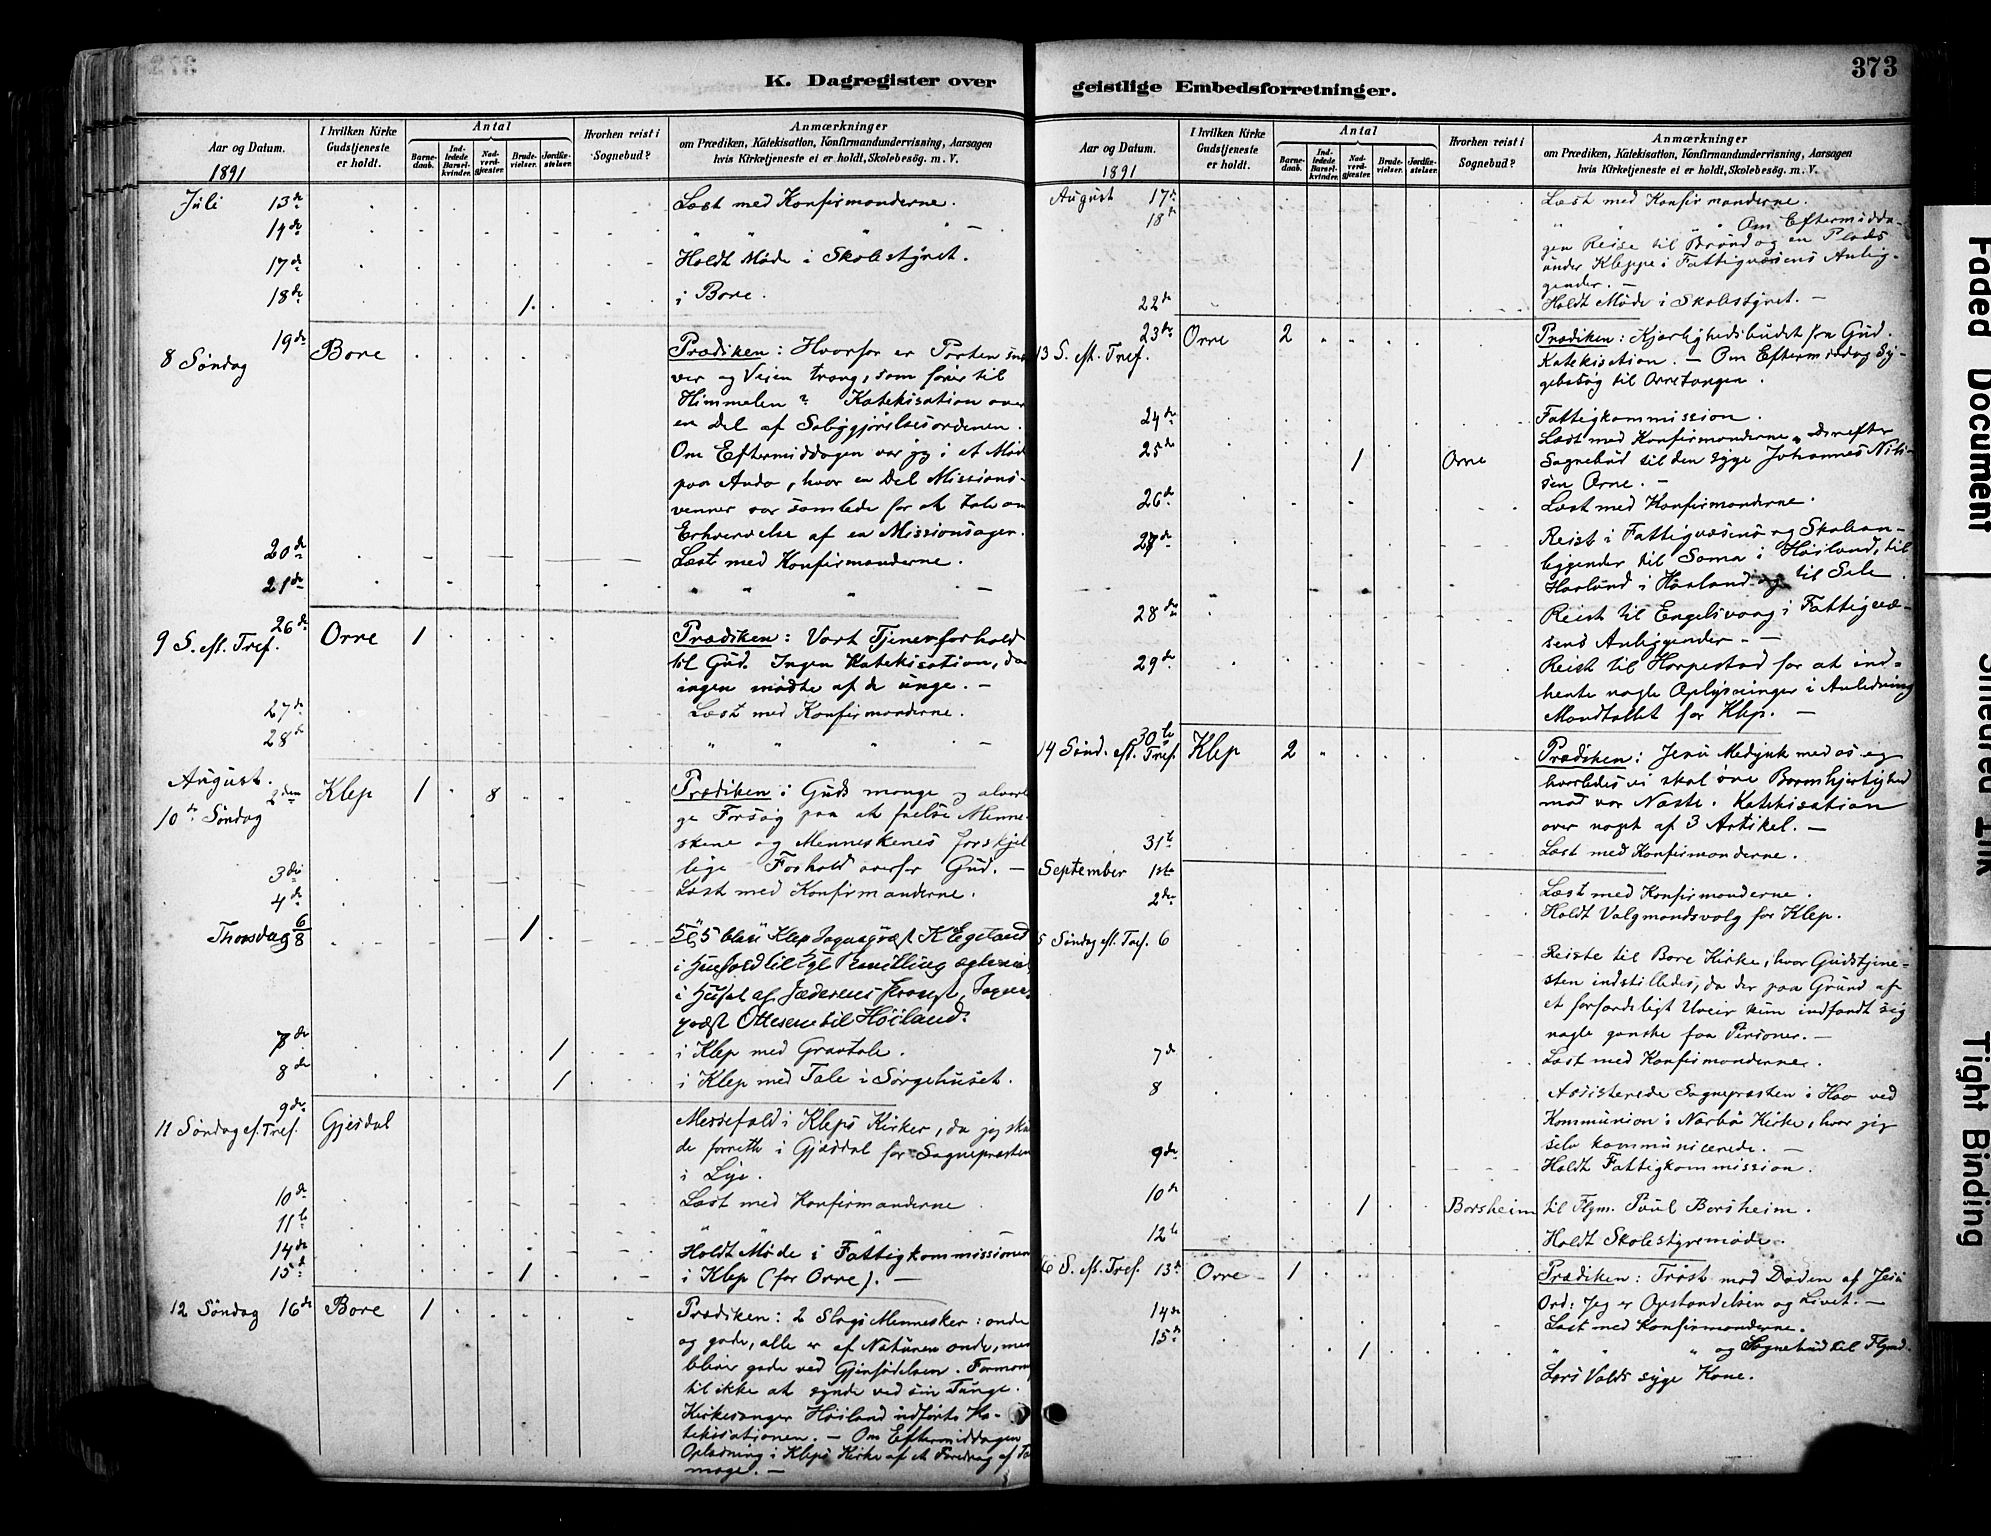 373
K. Dagregister over
geistlige Embedsforretninger.
Aar og Datum.
1891
I hvilken Kirke Gudstjeneste er holdt.
Antal
Barnedaab.
Indledede Barselkvinder.
Nadverdgjæster.
Brudevielser.
Jordfæstelser.
Hvorhen reist i Sognebud?
Anmærkninger
om Prædiken, Katekisation, Konfirmandundervisning, Aarsagen
hvis Kirketjeneste ei er holdt, Skolebesøg. m. V.
Juli 13de Læst med Konfirmanderne.
14de " " " " —
17de Holdt Møde i Skolestyret.
18de 1. i Bore.
19de
8 Søndag Bore Prædiken: Hvorfor er Porten
ver og Veien trang, som fører til
Himmelen? Katekisation over
en Del af Saliggjørelsesordenen.
Om Eftermiddagen var jeg i et Mød
paa Anda, hvor en Del Missions-
venner var samlede for at tale om
Erhvervelse af en Missionsager.
20de Læst med Konfirmanderne.
21de " " " —
26de
9 S. ef. Tref. Orre 1 Prædiken: Vort Tjenerforhold
til Gud. Ingen Katekisation, da
ingen mødte af de unge. —
27de Læst med Konfirmanderne.
28de " " " —
August.
2den Klep 1 8 Prædiken: Guds mange og alvorli
10de Søndag ge Forsøg paa at frelse Menne-
skene og Menneskenes forskjel
lige Forhold overfor Gud. —
3die
4de Læst med Konfirmanderne.
Thorsdag 6/8 1 Klep Sogneprest K Egeland
i Huset af Jæderens Provst, Sogne-
prest Ottesen til Høiland.
7de 1 i Klep med Gravtale.
8de 1 i Klep med Tale i Sørgehuset.
9de
11 Søndag ef. Tref. Gjesdal Messefald i Kleps Kirker, da jeg skul
de forrette i Gjesdal for Sognepræsten
i Lye.
10de Læst med Konfirmanderne
11te " " "
14de Holdt Møde i Fattigkommissionen
15de 1 i Klep (for Orre). —
12 Søndag 16de Bore 1 Prædiken: 2 Slags Mennesker: onde
og gode, alle er af Naturen onde, men
bliver gode ved Gjenfødelsen. Formaning
til ikke at synde ved sin Tunge.
Kirkesanger Høiland udførte Ka-
tekisationen. — Om Eftermiddagen
Oplæsning i Kleps Kirke af et Foredrag af Ta
mage. —
Aar og Datum.
1891
I hvilken Kirke Gudstjeneste er holdt.
Antal
Barnedaab.
Indledede Barselkvinder.
Nadverdgjæster.
Brudevielser.
Jordfæstelser.
Hvorhen reist i Sognebud?
Anmærkninger
om Prædiken, Katekisation, Konfirmandundervisning, Aarsagen
hvis Kirketjeneste ei er holdt, Skolebesøg. m. V.
August 17de Læst med Konfirmanderne.
18de " " " Om Eftermidda-
gen Reise til Brønd og en Plads
under Kleppe i Fattigvæsens Anlig-
gender. —
22de Holdt Møde i Skolestyret. —
23de Orre 2 Prædiken: Kjærlighedsbudet fra Gud.
13 S. ef. Tref. Katekisation. — Om Eftermiddag Sy-
gebesøg til Orretangen.
24de Fattigkommission.
25de Læst med Konfirmanderne, derefter
1 Orre Sognebud til den syge Johannes Nils-
sen Orre. —
26de Læst med Konfirmanderne.
27de Reist i Fattigvæsens og Skolean-
liggender til Soma i Høiland, til
Haaland i Haaland og til Sele.
28de Reist til Engelsvaag i Fattigvæ-
sens Anliggender. —
29de Reist til Horpestad for at ind-
hente nogle Oplysninger i Anledning
Mandtallet for Klep. —
30te
14 Sønd. ef. Tref. Klep 2 Prædiken: Jesu Medynk med os og
hvorledes vi skal øve Barmhjertighed
mod vor Næste. Katekisation
over noget af 3 Artikel. —
31te Læst med Konfirmanderne.
September 1ste Læst med Konfirmanderne.
2den Holdt Valgmandsvalg for Klep.
5 Søndag ef. Tref. 6 Reiste til Bore Kirke, hvor Gudstjene-
sten indstilledes, da der paa Grund af
et forfærdeligt Uveir kun indfandt sig
nogle ganske faa Personer. —
7de Læst med Konfirmanderne.
8 Assisterede Sognepræsten i Haa ved
Kommunion i Nærbø Kirke, hvor jeg
selv kommunicerede. —
9de Holdt Fattigkommission.
10de 1 Borsheim til Flgm. Paul Borsheim.
12te Holdt Skolestyremøde.
6 S. ef. Tref. 13de Orre 1 Prædiken: Trøst mod Døden af Jesu
Ord: Jeg er Opstandelsen og Livet. —
14de Læst med Konfirmanderne.
15de 1 " " " og Sognebud til Flgmd.
Lars Valds syge Kone.
Faded Document
Smeared Ink
Tight Binding